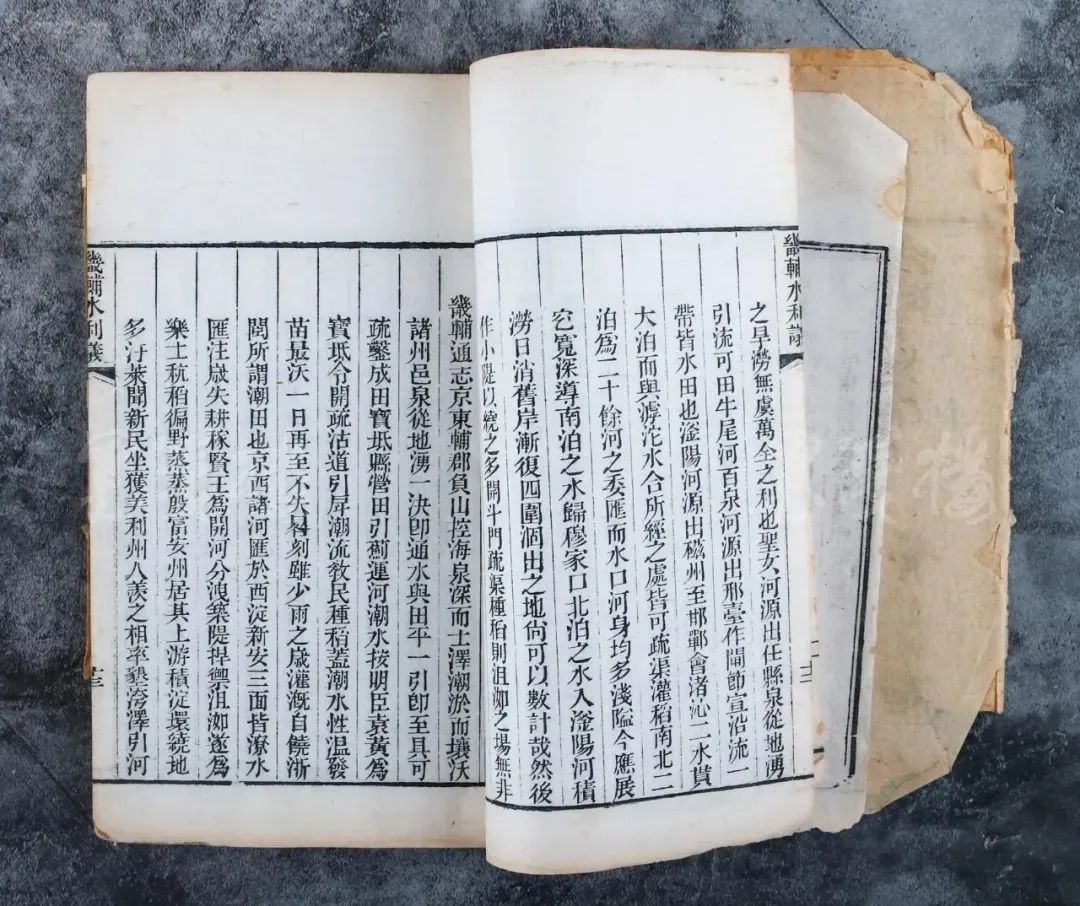 畿輔水利議
之旱澇無虞萬全之利也聖女河源出任縣泉從地湧
引流可田牛尾河百泉河源出邢臺作閘節宣沿流一
帶皆水田也滏陽河源出磁州至邯鄲會渚沁二水貫
大泊而與滹沱水合所經之處皆可疏渠灌稻南北二
泊為二十餘河之委匯而水口河身均多淺隘今應展
空寬深導南泊之水歸穆家口北泊之水入滏陽河積
澇日消舊岸漸復四圍涸出之地尚可以數計哉然後
作小隄以繞之多開斗門疏渠種稻則沮洳之場無非
畿輔通志京東輔郡負山控海泉深而土澤潮淤而壤沃
諸州邑泉從地湧一決卽通水與田平一引卽至具可
疏鑿成田寶坻縣營田引薊運河潮水按明臣袁黃為
寶坻令開疏沽道引戽潮流敎民種稻蓋潮水性温發
苗最沃一日再至不失晷刻雖少雨之歲灌漑自饒浙
閩所謂潮田也京西諸河匯於西淀新安三面皆潦水
匯注歲失耕稼賢王為開河分洩築隄捍禦沮洳遂為
樂土秔稻徧野蒸蒸殷富安州居其上游積淀環繞地
多汙萊聞新民坐獲美利州人羨之相率墾涝澤引河
畿輔水利議